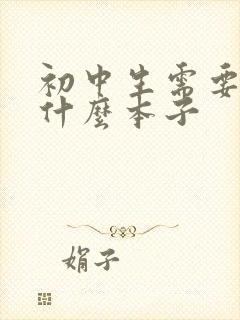 初中生需要
什麼本子
娟子